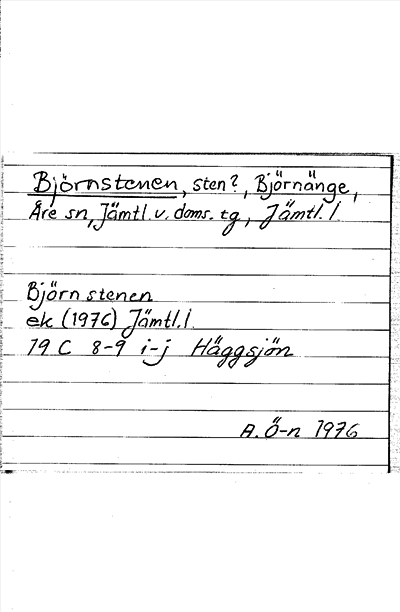 Björnstenen, sten?, Björnänge,
Åre sn, Jämtl. v. doms. tg, Jämtl. l.
Björnstenen
ek (1976) Jämtl. l
19 C 8-9 i-j Häggsjön
A. Ö-n 1976